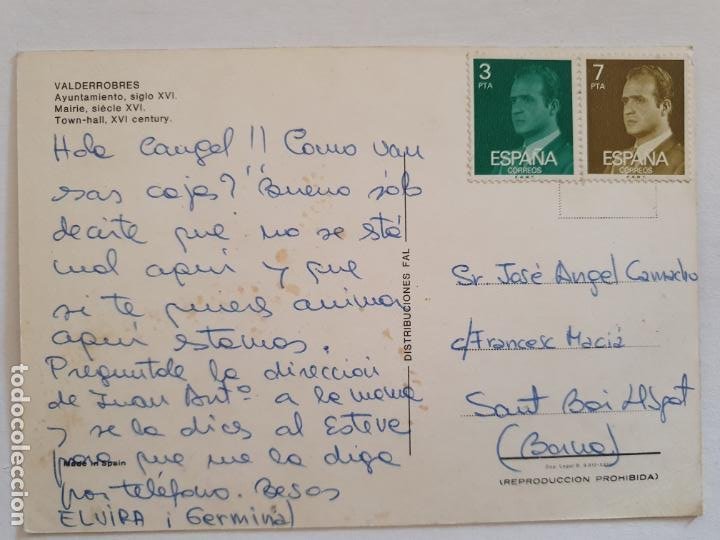 VALDERROBRES
Ayuntamiento, siglo XVI.
Mairie, siècle XVI.
Town-hall, XVI century.
3
PTA
ESPAÑA
CORREOS
7
PTA
ESPAÑA
CORREOS
Hola Cangel!! Como van
esas cajas? "Bueno sólo
decirte que no se está
mal aquí y que
si te quieres animar
aquí estamos.
Preguntale la direccion
de Juan Antº a la mama
y se la dices al Esteve
para que me la diga
por teléfono. Besos
ELVIRA i Germinal
Made in Spain
DISTRIBUCIONES FAL
Sr José Angel Camacho
c/Francesc Macià
Sant Boi Llgat
(Barna)
(REPRODUCCION PROHIBIDA)
todocoleccion.net